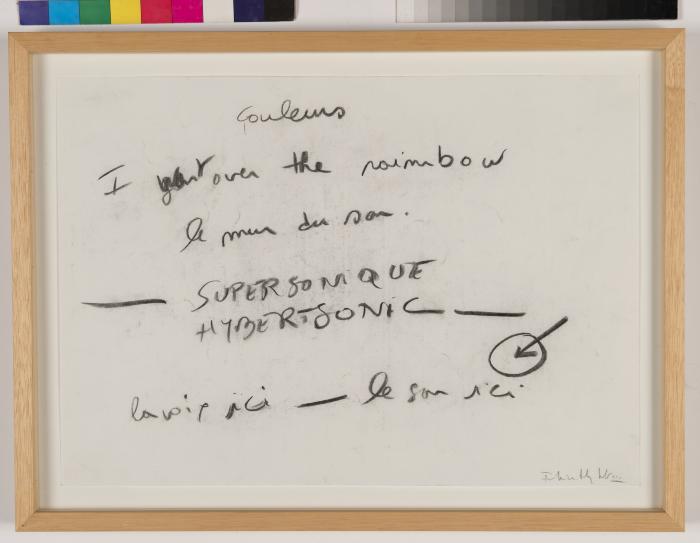 Couleurs
I over the raimbow
le mur du son.
— SUPERSONIQUE
HYBERSONIC —
la voix ici — le son ici